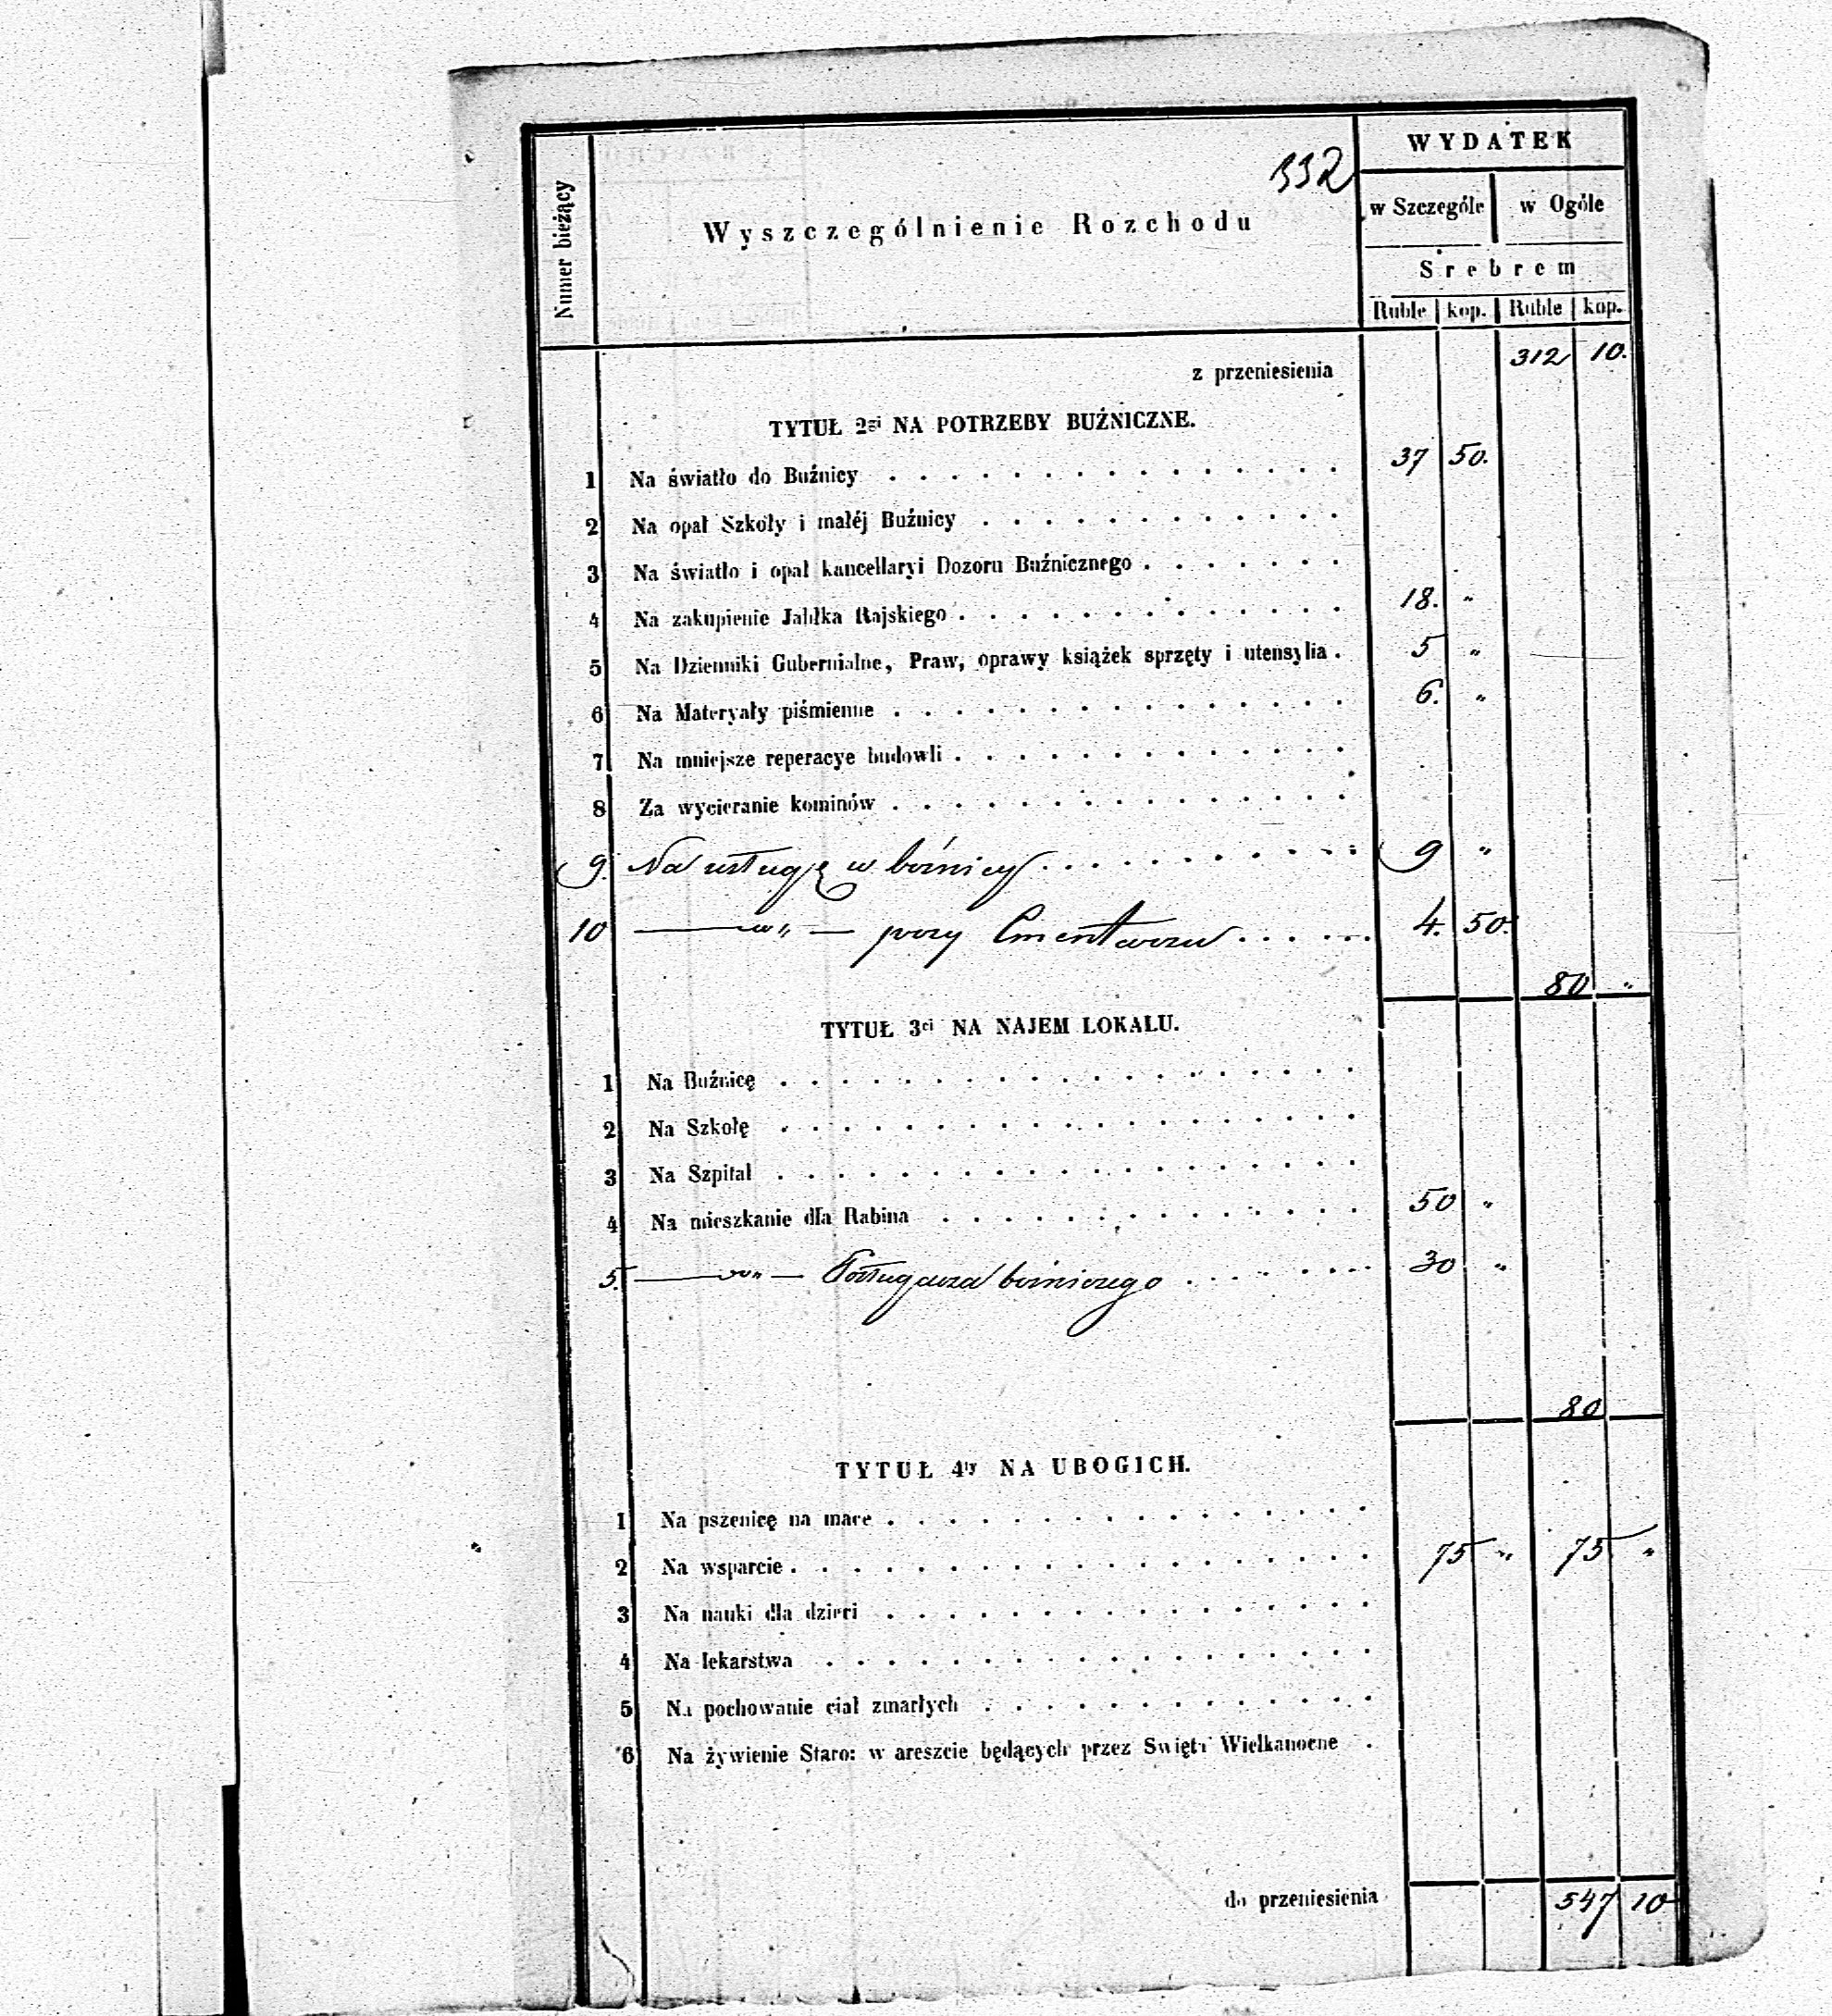 332
WYDATEK
Numer bieżący
Wyszczególnienie Rozchodu
w Szczególe w Ogóle
Srebrem
Ruble kop. Ruble kop.
z przeniesienia 312 10.
TYTUŁ 2gi NA POTRZEBY BUŹNICZNE.
1 Na światło do Buźnicy . . . . . . . . . . . . . . . 37 50.
2 Na opał Szkoły i małéj Buźnicy . . . . . . . . . . . .
3 Na światło i opał kancellaryi Dozoru Buźnicznego . . . . . . .
4 Na zakupienie Jabłka Rajskiego . . . . . . . . . . . . . 18. „
5 Na Dzienniki Gubernialne, Praw, oprawy książek sprzęty i utensylia . 5 „
6 Na Materyały piśmienne . . . . . . . . . . . . . . . 6. „
7 Na mniejsze reperacye budowli . . . . . . . . . . . . .
8 Za wycieranie kominów . . . . . . . . . . . . . . .
9. Na usługę w bóźnicy . . . . . . . . . . . 9 „
10 — „ — przy Cmentarzu . . . . . . 4. 50.
80 „
TYTUŁ 3ci NA NAJEM LOKALU.
1 Na Buźnicę . . . . . . . . . . . . . . . . . . .
2 Na Szkołę . . . . . . . . . . . . . . . . . . .
3 Na Szpital . . . . . . . . . . . . . . . . . . .
4 Na mieszkanie dla Rabina . . . . . . . . . . . . . . 50 „
5. — „ — Posługacza bóźniczego . . . . . . . . 30 „
80
TYTUŁ 4ty NA UBOGICH.
1 Na pszenicę na mace . . . . . . . . . . . . . . . .
2 Na wsparcie . . . . . . . . . . . . . . . . . . . 75 „ 75 „
3 Na nauki dla dzieci . . . . . . . . . . . . . . . .
4 Na lekarstwa . . . . . . . . . . . . . . . . . .
5 Na pochowanie ciał zmarłych . . . . . . . . . . . . .
6 Na żywienie Staro: w areszcie będących przez Święta Wielkanocne .
do przeniesienia 547 10